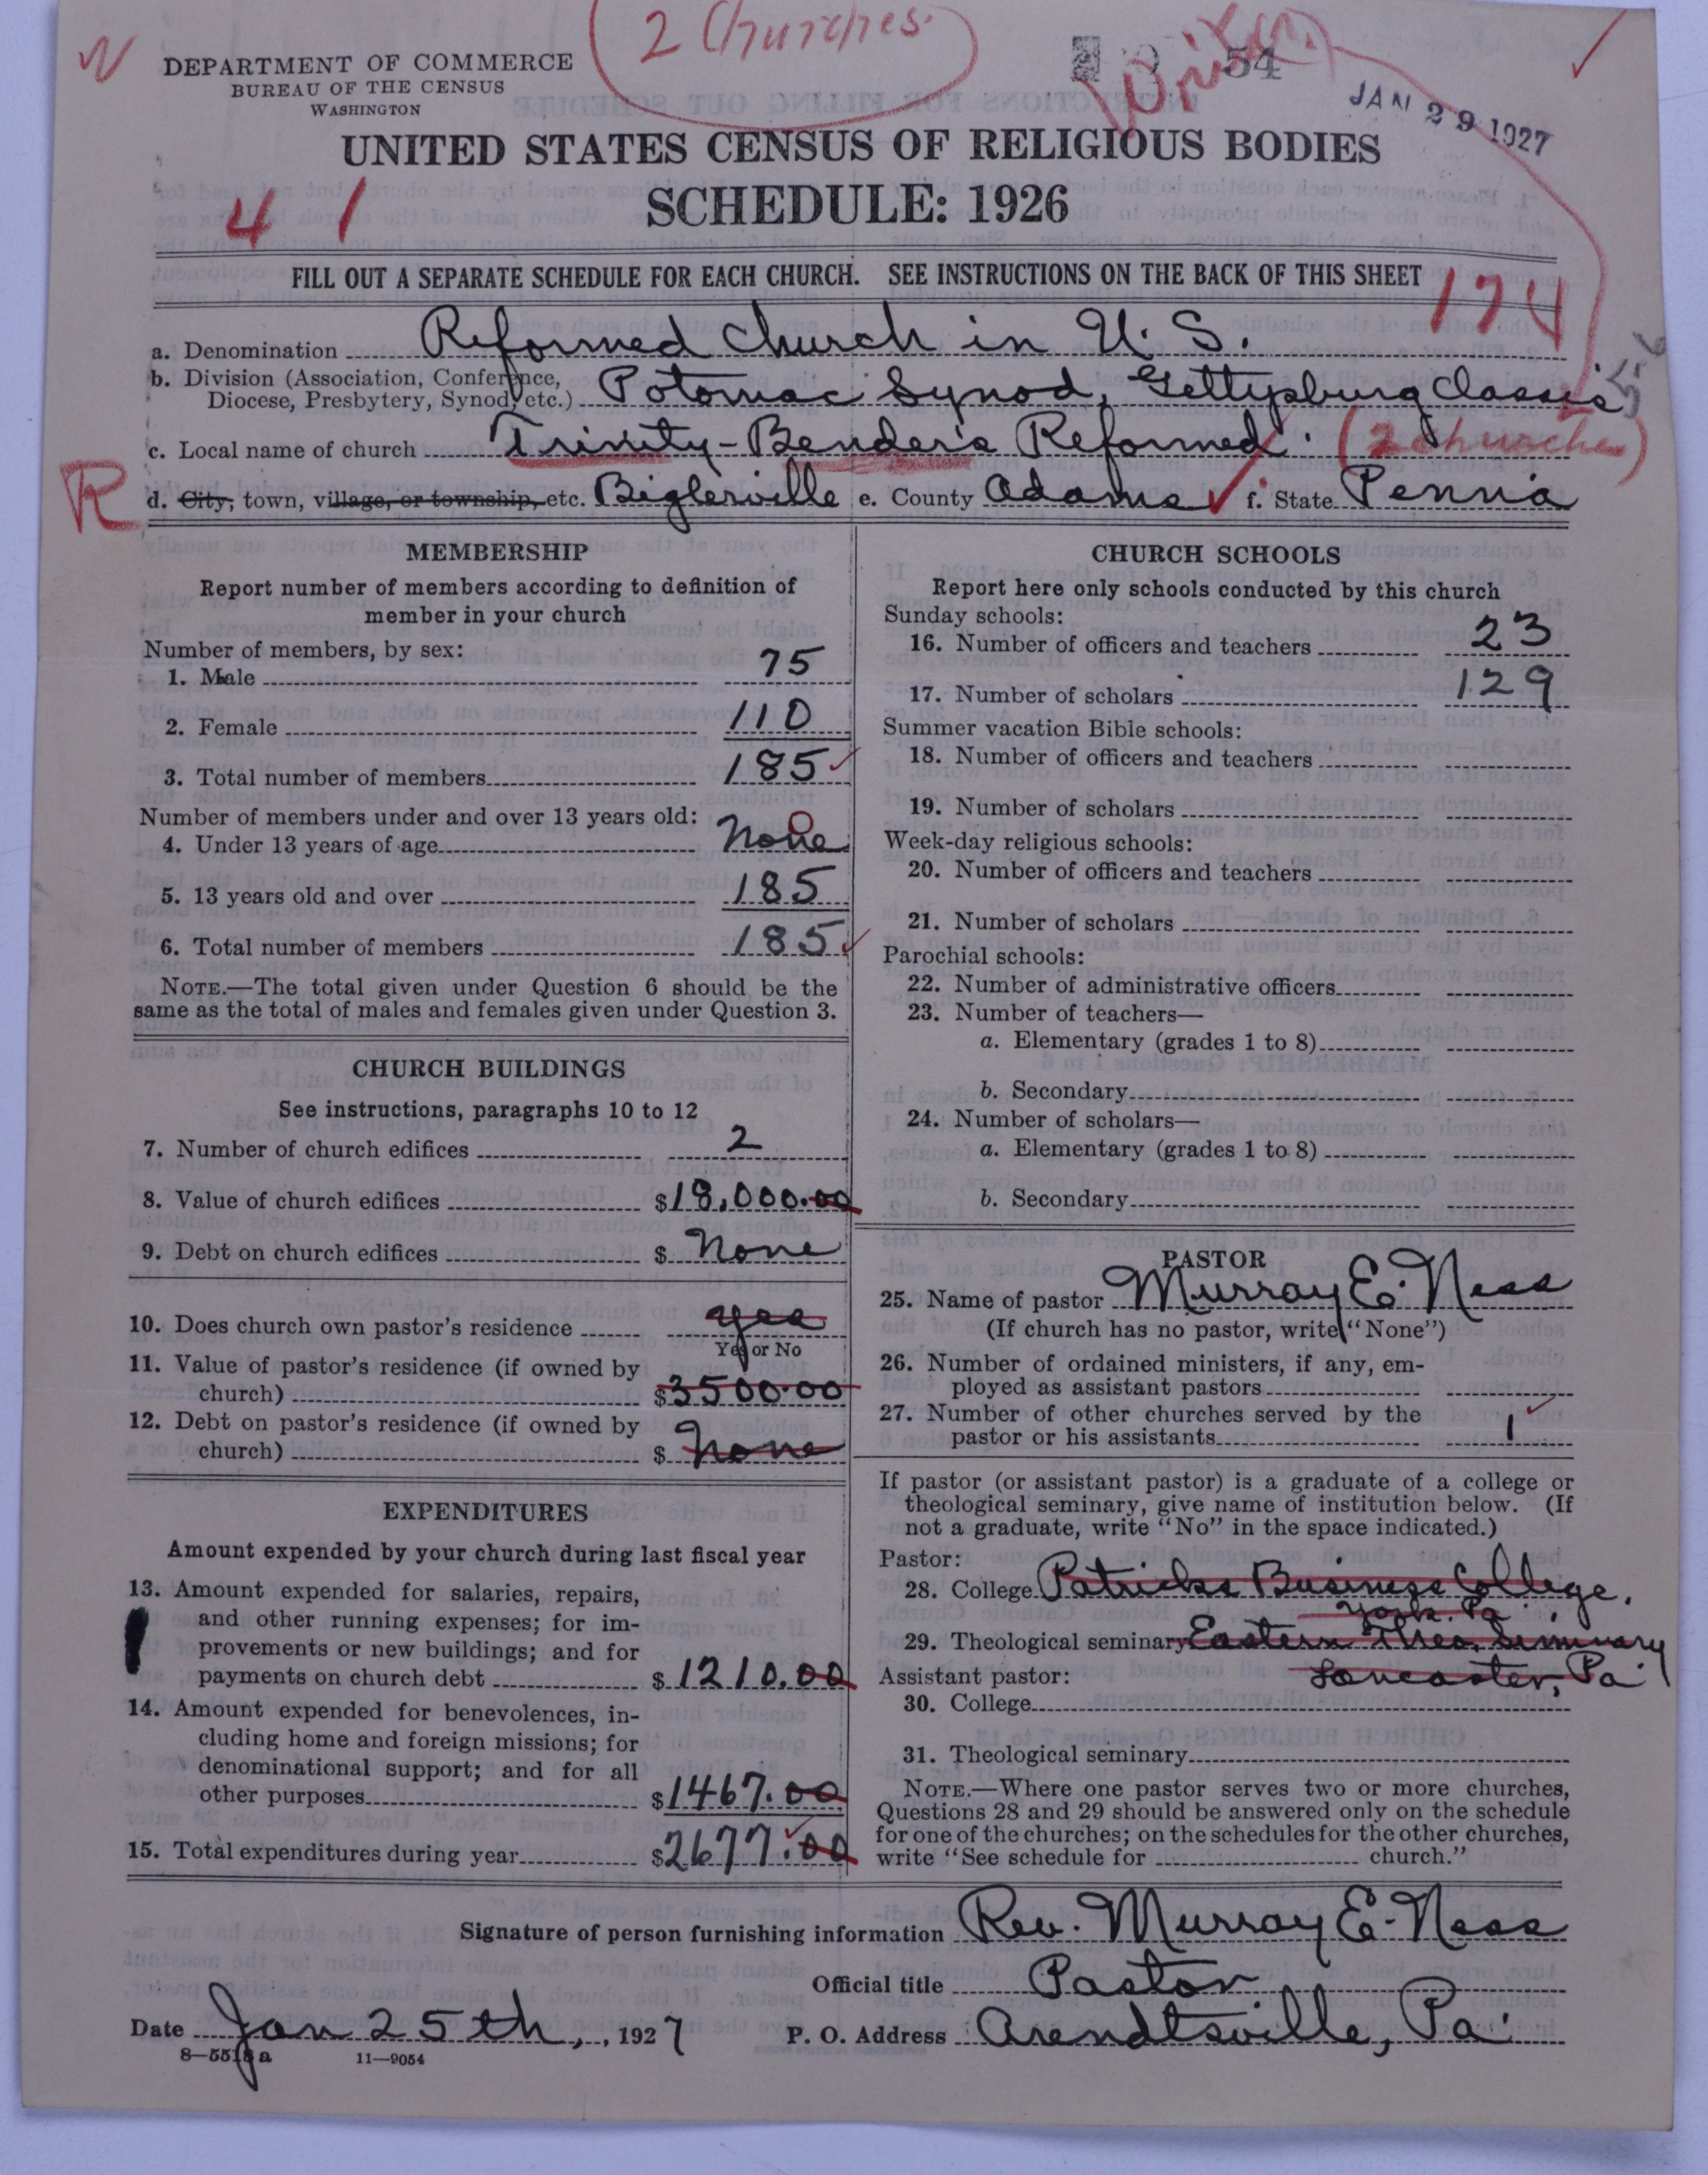 2 Churches.
N
DEPARTMENT OF COMMERCE
BUREAU OF THE CENSUS
WASHINGTON
54
JAN 29 1927
UNITED STATES CENSUS OF RELIGIOUS BODIES
SCHEDULE: 1926
4 1
FILL OUT A SEPARATE SCHEDULE FOR EACH CHURCH. SEE INSTRUCTIONS ON THE BACK OF THIS SHEET
174
a. Denomination Reformed Church in U. S.
b. Division (Association, Conference,
Diocese, Presbytery, Synod, etc.) Potomac Synod, Gettysburg Classis
c. Local name of church Trinity-Bender's Reformed. (2 churches)
R
d. City, town, village, or township, etc. Biglerville e. County Adams f. State Penna
MEMBERSHIP
Report number of members according to definition of
member in your church
Number of members, by sex:
1. Male 75
2. Female 110
3. Total number of members 185
Number of members under and over 13 years old:
4. Under 13 years of age None 0
5. 13 years old and over 185
6. Total number of members 185
NOTE.—The total given under Question 6 should be the
same as the total of males and females given under Question 3.
CHURCH BUILDINGS
See instructions, paragraphs 10 to 12
7. Number of church edifices 2
8. Value of church edifices $18,000.00
9. Debt on church edifices $ None
10. Does church own pastor's residence yes
Yes or No
11. Value of pastor's residence (if owned by
church) $3500.00
12. Debt on pastor's residence (if owned by
church) $ None
EXPENDITURES
Amount expended by your church during last fiscal year
13. Amount expended for salaries, repairs,
and other running expenses; for im-
provements or new buildings; and for
payments on church debt $1210.00
14. Amount expended for benevolences, in-
cluding home and foreign missions; for
denominational support; and for all
other purposes $1467.00
15. Total expenditures during year $2677.00
CHURCH SCHOOLS
Report here only schools conducted by this church
Sunday schools:
16. Number of officers and teachers 23
17. Number of scholars 129
Summer vacation Bible schools:
18. Number of officers and teachers
19. Number of scholars
Week-day religious schools:
20. Number of officers and teachers
21. Number of scholars
Parochial schools:
22. Number of administrative officers
23. Number of teachers—
a. Elementary (grades 1 to 8)
b. Secondary
24. Number of scholars—
a. Elementary (grades 1 to 8)
b. Secondary
PASTOR
25. Name of pastor Murray E. Ness
(If church has no pastor, write "None")
26. Number of ordained ministers, if any, em-
ployed as assistant pastors
27. Number of other churches served by the
pastor or his assistants 1
If pastor (or assistant pastor) is a graduate of a college or
theological seminary, give name of institution below. (If
not a graduate, write "No" in the space indicated.)
Pastor:
28. College Patricks Business College,
York. Pa.
29. Theological seminary Eastern Theo. Seminary
Assistant pastor: Lancaster, Pa.
30. College
31. Theological seminary
NOTE.—Where one pastor serves two or more churches,
Questions 28 and 29 should be answered only on the schedule
for one of the churches; on the schedules for the other churches,
write "See schedule for church."
Signature of person furnishing information Rev. Murray E. Ness
Official title Pastor
Date Jan 25th, , 1927 P. O. Address Arendtsville, Pa.
8—5518a 11—9054